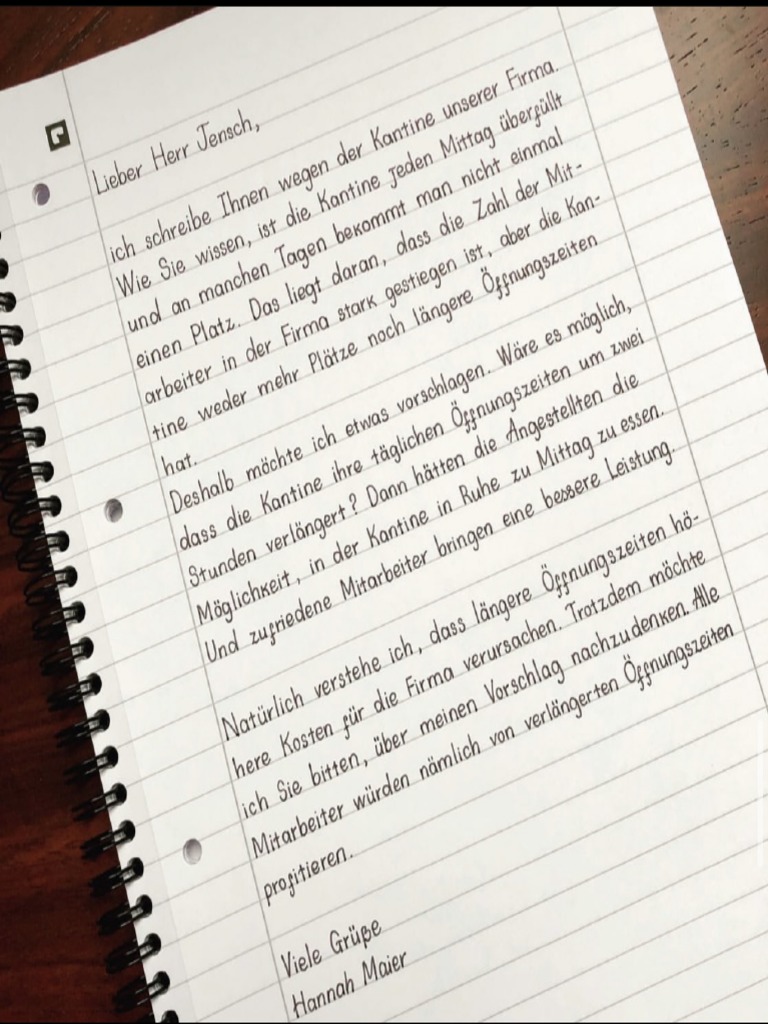 Lieber Herr Jensch,
ich schreibe Ihnen wegen der Kantine unserer Firma.
Wie Sie wissen, ist die Kantine jeden Mittag überfüllt
und an manchen Tagen bekommt man nicht einmal
einen Platz. Das liegt daran, dass die Zahl der Mit-
arbeiter in der Firma stark gestiegen ist, aber die Kan-
tine weder mehr Plätze noch längere Öffnungszeiten
hat.
Deshalb möchte ich etwas vorschlagen. Wäre es möglich,
dass die Kantine ihre täglichen Öffnungszeiten um zwei
Stunden verlängert? Dann hätten die Angestellten die
Möglichkeit, in der Kantine in Ruhe zu Mittag zu essen.
Und zufriedene Mitarbeiter bringen eine bessere Leistung.
Natürlich verstehe ich, dass längere Öffnungszeiten hö-
here Kosten für die Firma verursachen. Trotzdem möchte
ich Sie bitten, über meinen Vorschlag nachzudenken. Alle
Mitarbeiter würden nämlich von verlängerten Öffnungszeiten
profitieren.
Viele Grüße
Hannah Maier